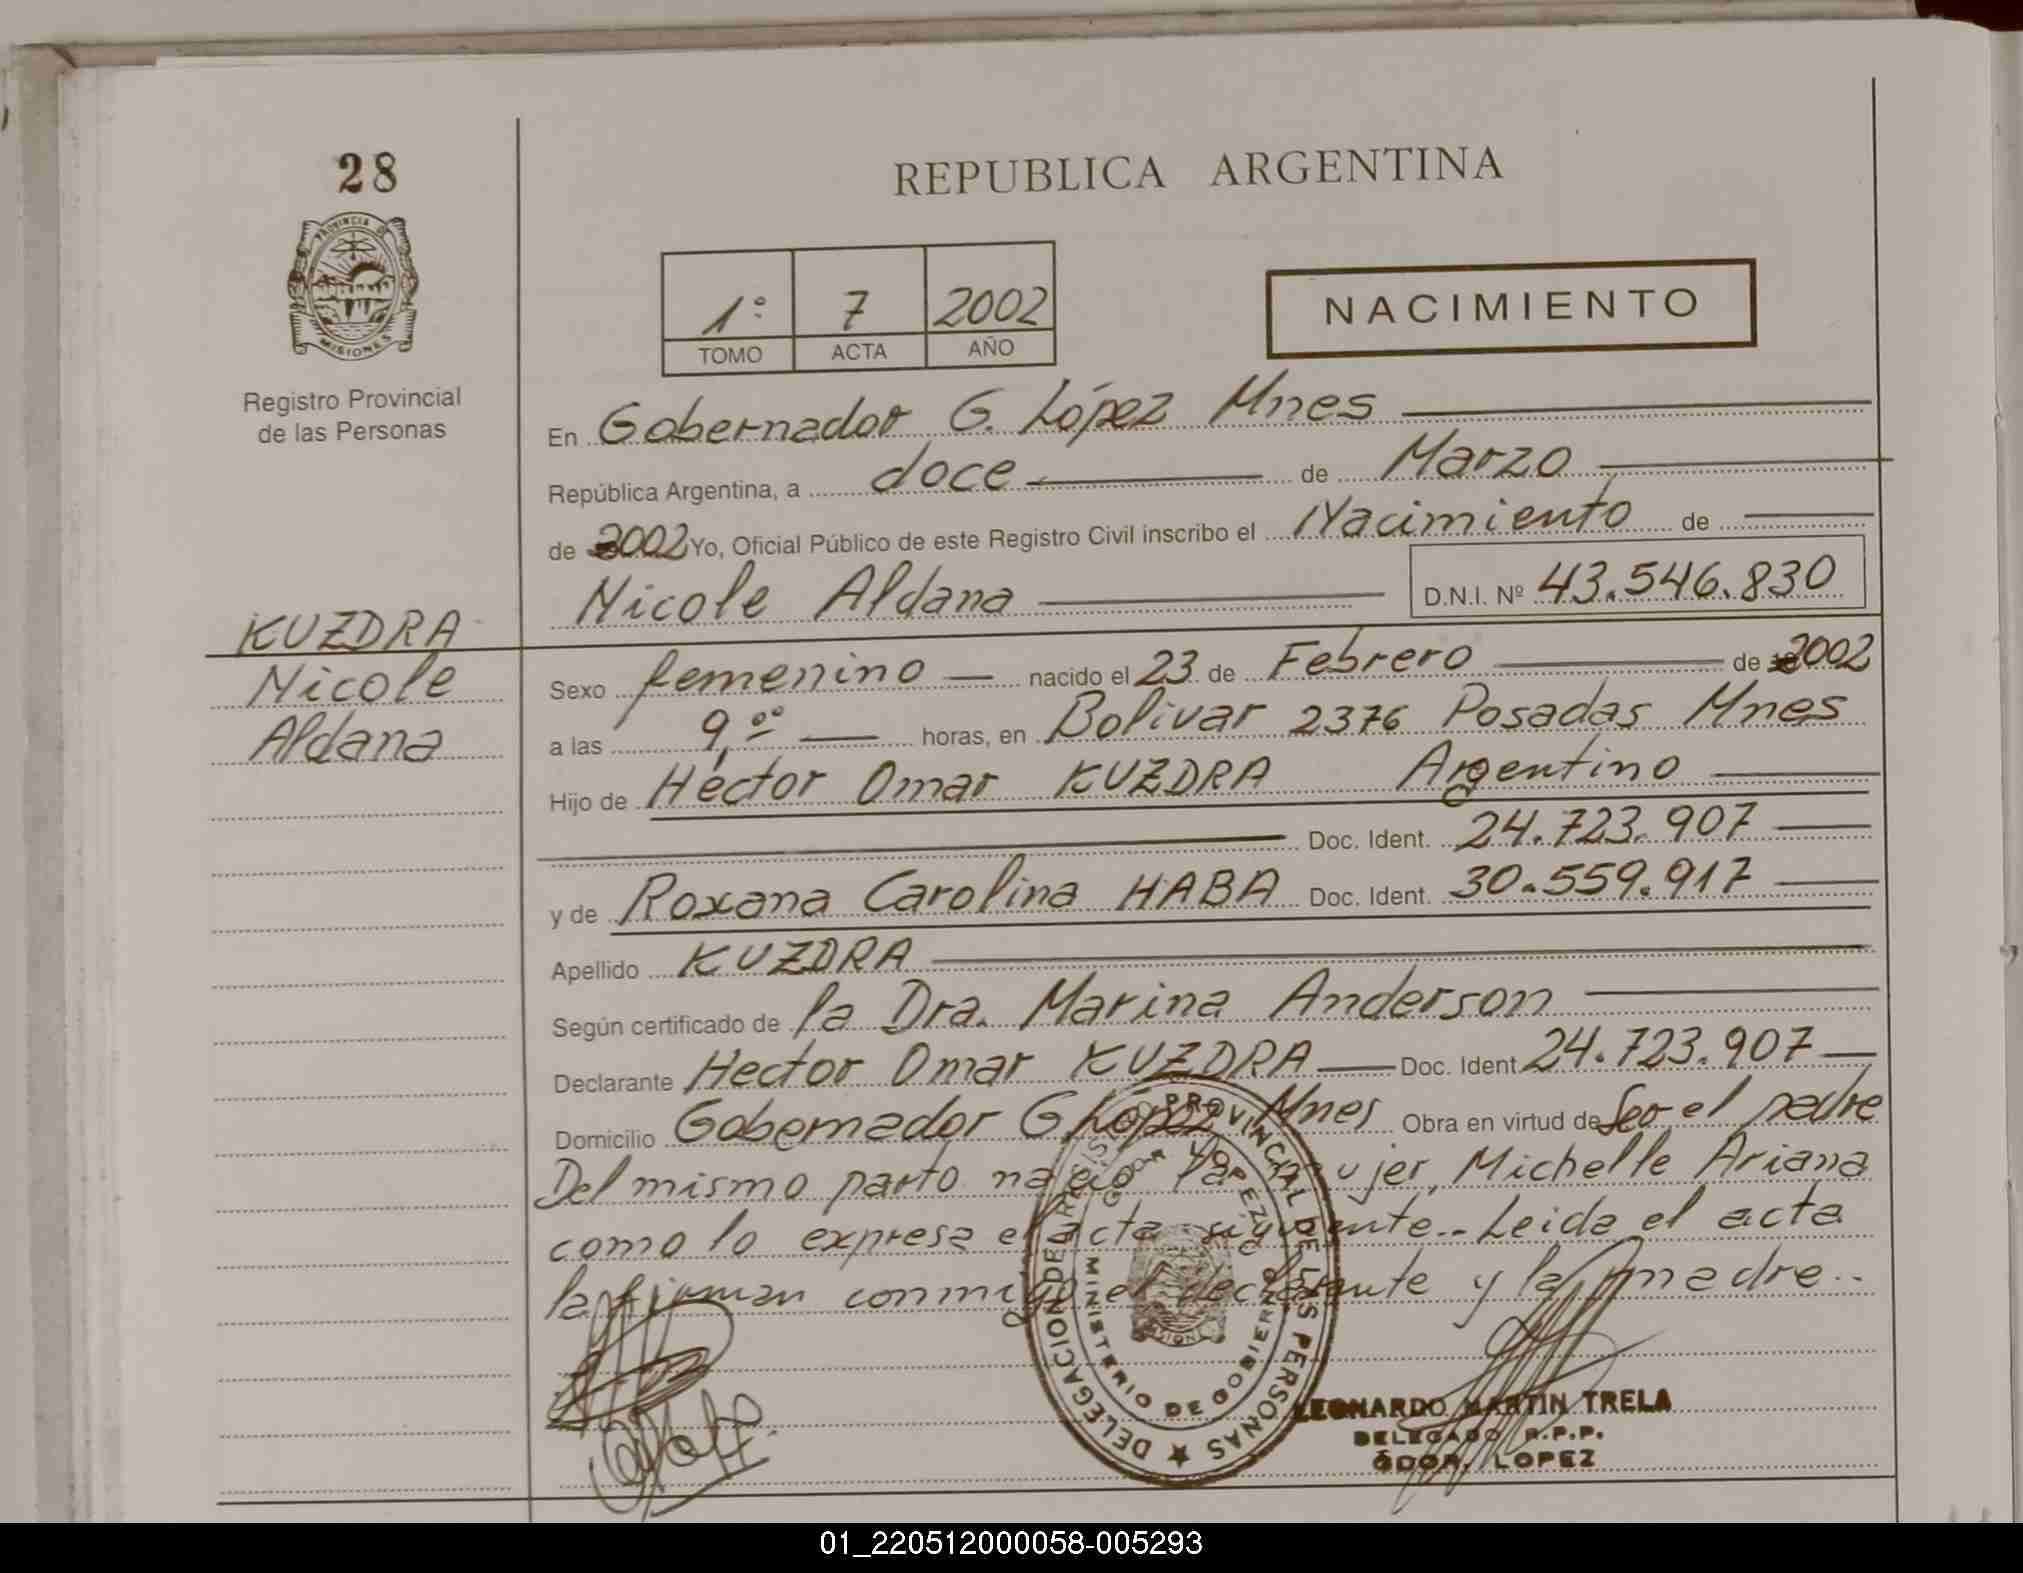 28
REPUBLICA ARGENTINA
PROVINCIA DE
MISIONES
Registro Provincial
de las Personas
1º 7 2002
TOMO ACTA AÑO
NACIMIENTO
En Gobernador G. López Mnes
República Argentina, a doce de Marzo
de 2002 Yo, Oficial Público de este Registro Civil inscribo el Nacimiento de
Nicole Aldana D.N.I. Nº 43.546.830
KUZDRA
Nicole
Aldana
Sexo femenino nacido el 23 de Febrero de 2002
a las 9,ºº horas, en Bolivar 2376 Posadas Mnes
Hijo de Héctor Omar KUZDRA Argentino
Doc. Ident. 24.723.907
y de Roxana Carolina HABA Doc. Ident. 30.559.917
Apellido KUZDRA
Según certificado de la Dra. Marina Anderson
Declarante Hector Omar KUZDRA Doc. Ident 24.723.907
Domicilio Gobernador G López Mnes Obra en virtud de Ser el padre
Del mismo parto nació la mujer, Michelle Ariana
como lo expresa el acta siguiente.. Leida el acta
la firman conmigo el declarante y la madre..
DELEGACION DE REGISTRO PROVINCIAL DE LAS PERSONAS
MINISTERIO DE GOBIERNO
GDOR LOPEZ
LEONARDO MARTIN TRELA
DELEGADO R.P.P.
GDOR. LOPEZ
01_220512000058-005293